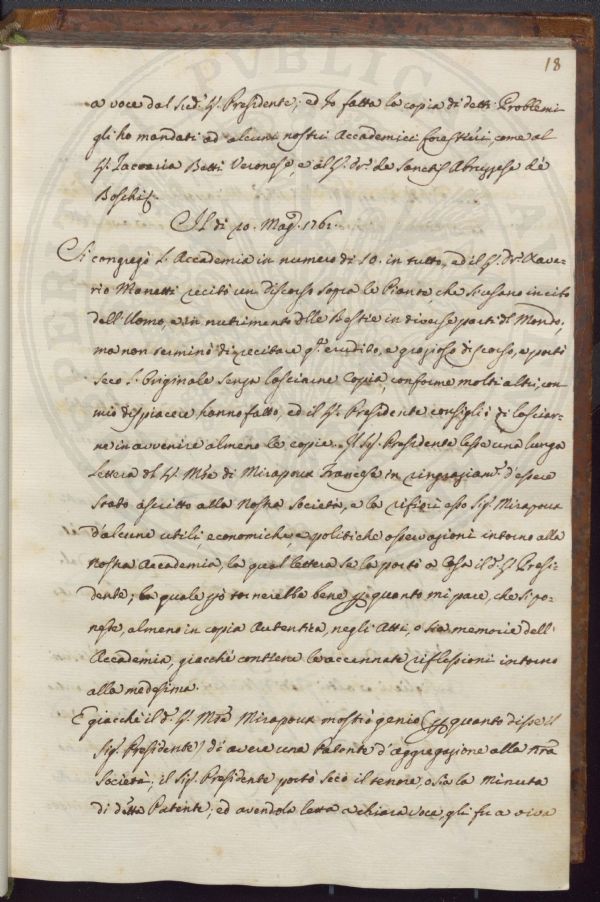 18
a voce dal sud.º Sig. Presidente; ed Io fatta la copia di detti Problemi
gli ho mandati ad alcuni nostri Accademici Forestieri, come al
Sig. Zaccaria Betti Veronese, e al Sig. Dr. de Sanctis Abruzzese de
Boschis.
Il dì 10. Mag.º 1761.
Si congregò l'Accademia in numero di 10. in tutto, ed il Sig. Dr. Xave-
rio Manetti recitò un discorso sopra le Piante che si usano in cibo
dell'Uomo, e in nutrimento delle Bestie in diverse parti del Mondo,
ma non terminò di recitare q.to erudito, e grazioso discorso, e portò
seco l'Originale senza lasciarne Copia, conforme molti altri, con
mio dispiacere hanno fatto, ed il Sig. Presidente consigliò di lasciar-
ne in avvenire almeno le copie. Il Sig. Presidente lesse una lunga
lettera del Sig. M.se di Mirapoux Francese in ringraziam.to d'essere
stato ascritto alla Nostra Società, e la riferì esso Sig. Mirapoux
d'alcune utili, economiche, e politiche osservazioni intorno alla
Nostra Accademia, la qual lettera se la portò a Casa il d.º Sig. Presi-
dente; la quale però tornerebbe bene per quanto mi pare, che si po-
nesse, almeno in copia Autentica, negli Atti, o sia memorie dell'
Accademia, giacché contiene le accennate riflessioni intorno
alla medesima.
E giacché il d.º Sig. M.se Mirapoux mostrò genio (per quanto disse il
Sig. Presidente) di avere una Patente d'aggregazione alla Nra
Società; il Sig. Presidente portò seco il tenore, o sia la Minuta
di d.ta Patente; ed avendola letta a chiara voce, gli fu a viva